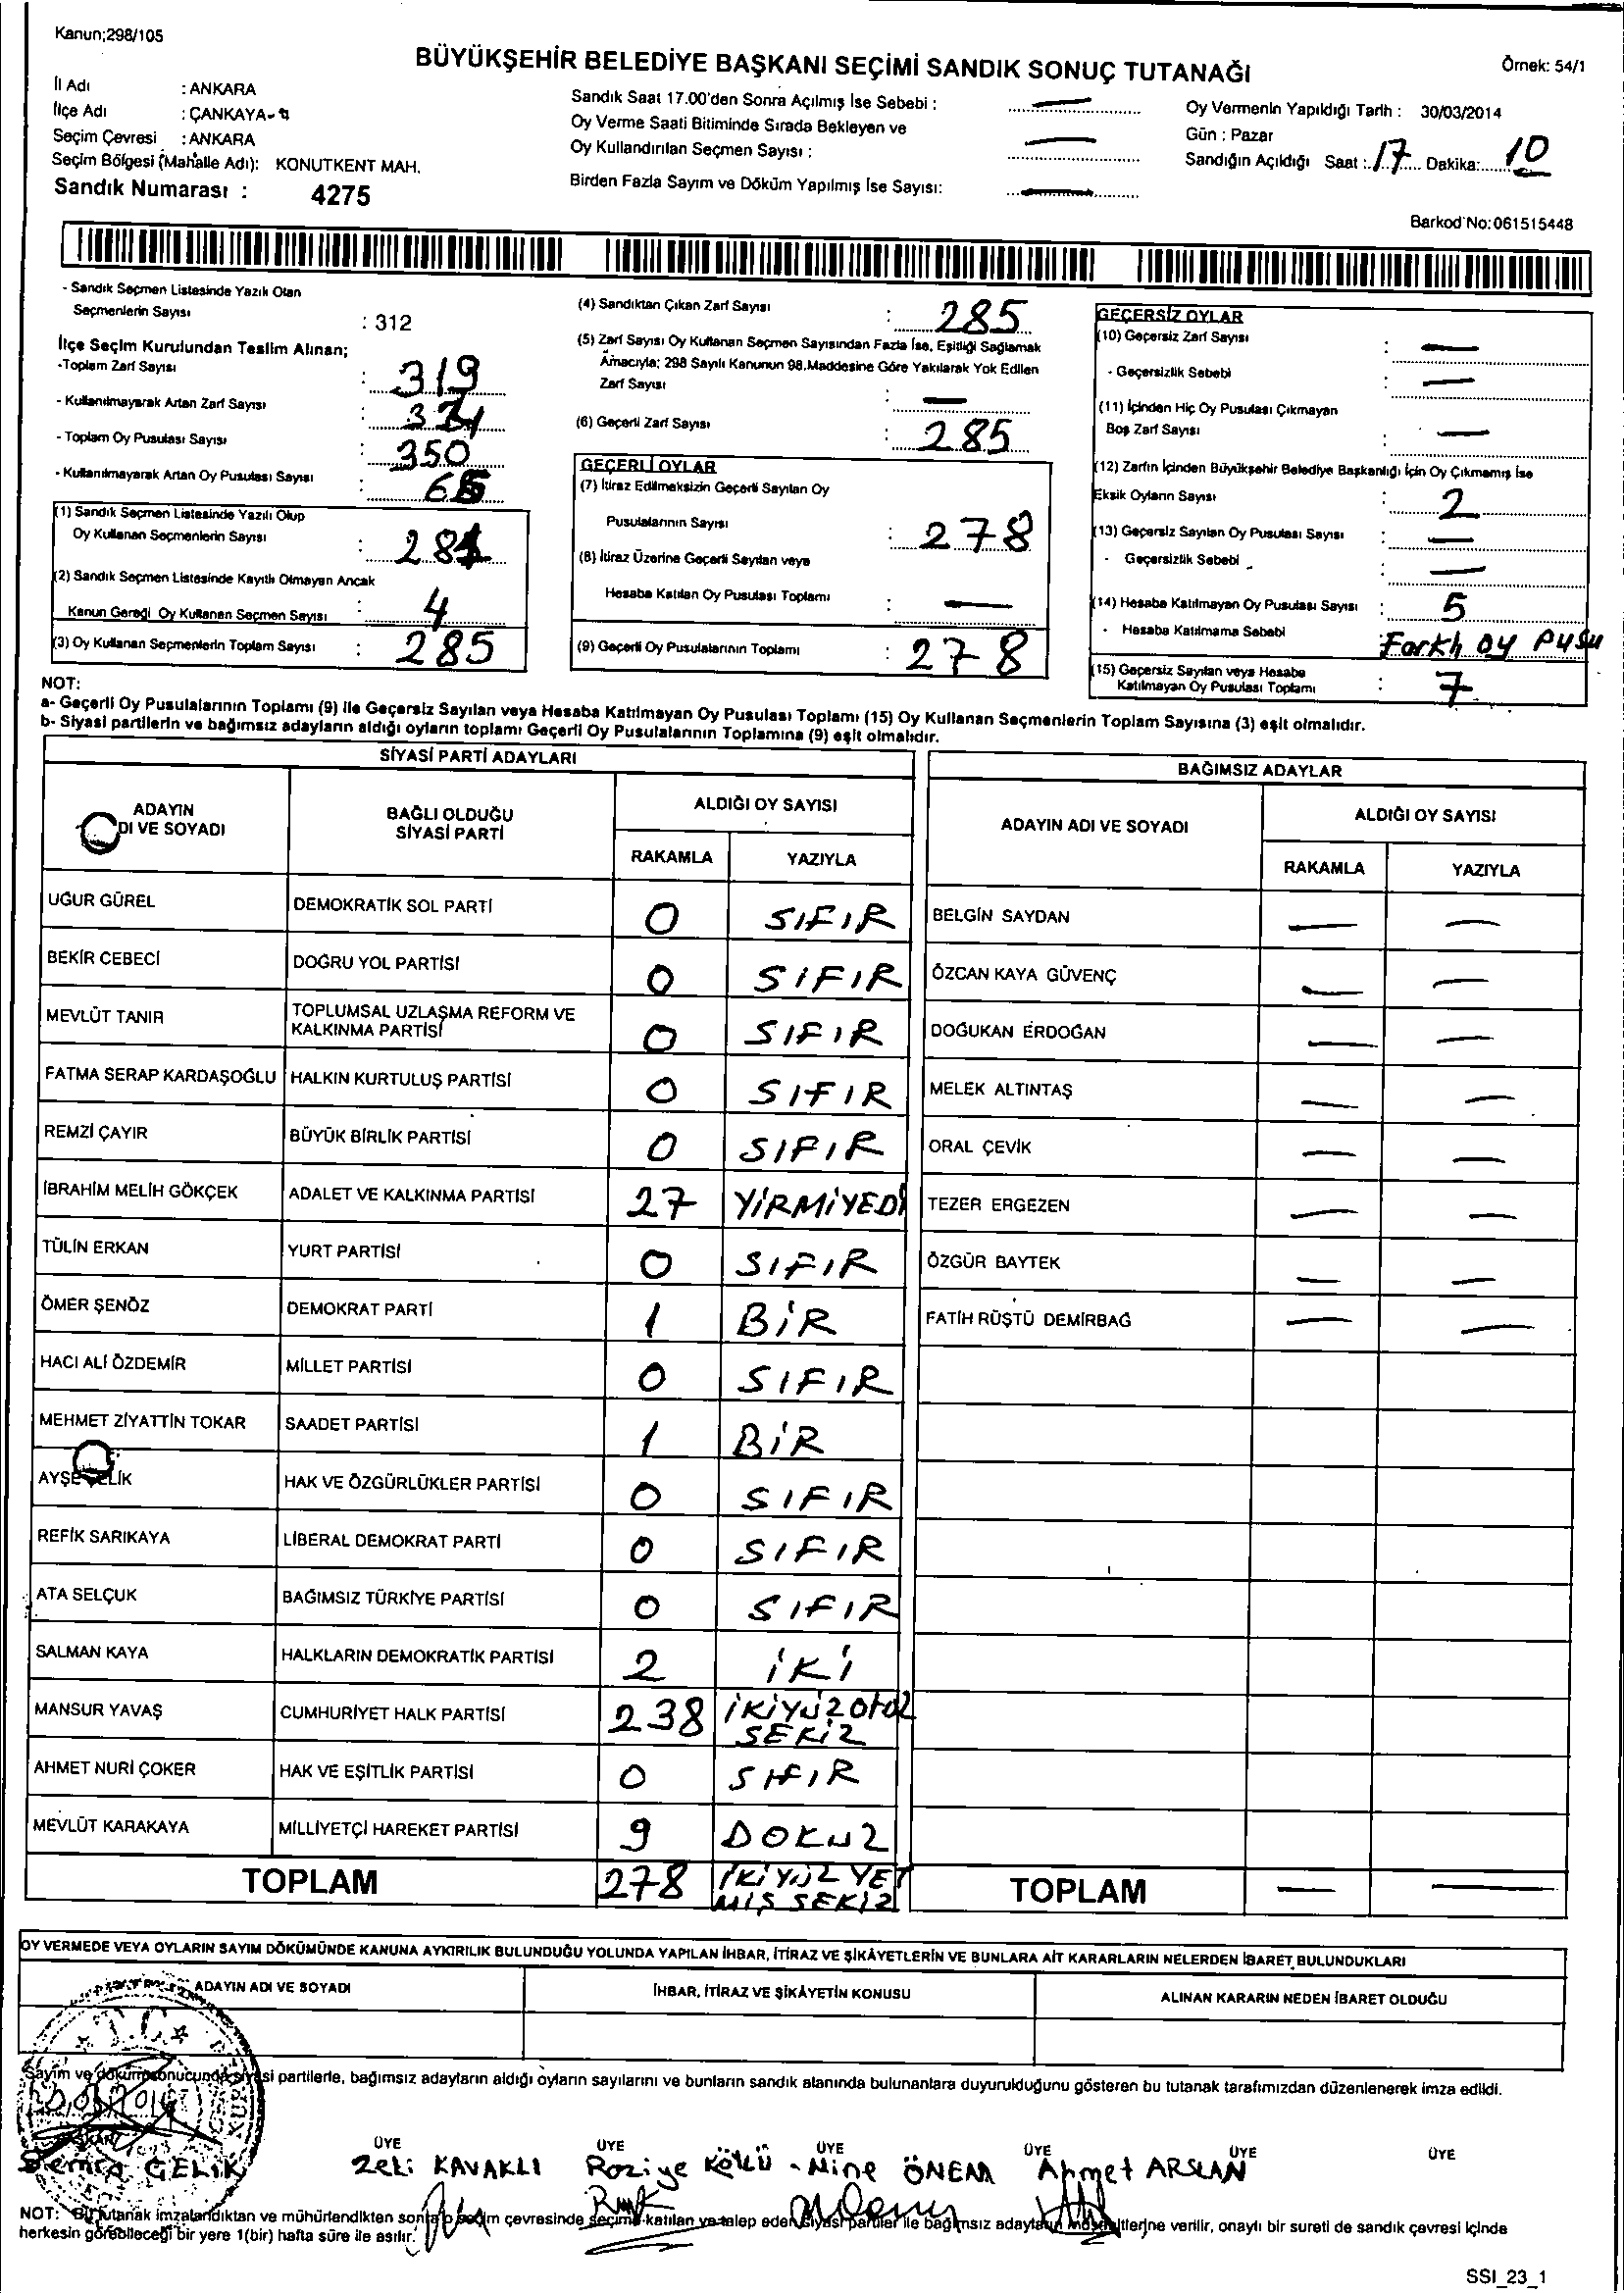 Kanun;298/105
BÜYÜKŞEHİR BELEDİYE BAŞKANI SEÇİMİ SANDIK SONUÇ TUTANAĞI
Örnek: 54/1
İl Adı : ANKARA
İlçe Adı : ÇANKAYA-
Seçim Çevresi : ANKARA
Seçim Bölgesi (Mahalle Adı): KONUTKENT MAH.
Sandık Numarası : 4275
Sandık Saat 17.00'den Sonra Açılmış İse Sebebi : —
Oy Verme Saati Bitiminde Sırada Bekleyen ve
Oy Kullandırılan Seçmen Sayısı : —
Birden Fazla Sayım ve Döküm Yapılmış İse Sayısı: —
Oy Vermenin Yapıldığı Tarih : 30/03/2014
Gün : Pazar
Sandığın Açıldığı Saat : 17 Dakika: 10
Barkod No:061515448
- Sandık Seçmen Listesinde Yazılı Olan
Seçmenlerin Sayısı : 312
İlçe Seçim Kurulundan Teslim Alınan;
-Toplam Zarf Sayısı : 319
- Kullanılmayarak Artan Zarf Sayısı :
- Toplam Oy Pusulası Sayısı : 350
- Kullanılmayarak Artan Oy Pusulası Sayısı :
(1) Sandık Seçmen Listesinde Yazılı Olup
Oy Kullanan Seçmenlerin Sayısı : 281
(2) Sandık Seçmen Listesinde Kayıtlı Olmayan Ancak
Kanun Gereği Oy Kullanan Seçmen Sayısı : 4
(3) Oy Kullanan Seçmenlerin Toplam Sayısı : 285
(4) Sandıktan Çıkan Zarf Sayısı : 285
(5) Zarf Sayısı Oy Kullanan Seçmen Sayısından Fazla İse, Eşitliği Sağlamak
Amacıyla; 298 Sayılı Kanunun 98.Maddesine Göre Yakılarak Yok Edilen
Zarf Sayısı : —
(6) Geçerli Zarf Sayısı : 285
GEÇERLİ OYLAR
(7) İtiraz Edilmeksizin Geçerli Sayılan Oy
Pusulalarının Sayısı : 278
(8) İtiraz Üzerine Geçerli Sayılan veya
Hesaba Katılan Oy Pusulası Toplamı : —
(9) Geçerli Oy Pusulalarının Toplamı : 278
GEÇERSİZ OYLAR
(10) Geçersiz Zarf Sayısı : —
- Geçersizlik Sebebi : —
(11) İçinden Hiç Oy Pusulası Çıkmayan
Boş Zarf Sayısı : —
(12) Zarfın İçinden Büyükşehir Belediye Başkanlığı İçin Oy Çıkmamış İse
Eksik Oyların Sayısı : 2
(13) Geçersiz Sayılan Oy Pusulası Sayısı : —
- Geçersizlik Sebebi : —
(14) Hesaba Katılmayan Oy Pusulası Sayısı : 5
- Hesaba Katılmama Sebebi : Farklı oy PUSU
(15) Geçersiz Sayılan veya Hesaba
Katılmayan Oy Pusulası Toplamı : 7
NOT:
a- Geçerli Oy Pusulalarının Toplamı (9) ile Geçersiz Sayılan veya Hesaba Katılmayan Oy Pusulası Toplamı (15) Oy Kullanan Seçmenlerin Toplam Sayısına (3) eşit olmalıdır.
b- Siyasi partilerin ve bağımsız adayların aldığı oyların toplamı Geçerli Oy Pusulalarının Toplamına (9) eşit olmalıdır.
SİYASİ PARTİ ADAYLARI
ADAYIN
DI VE SOYADI
BAĞLI OLDUĞU
SİYASİ PARTİ
ALDIĞI OY SAYISI
RAKAMLA YAZIYLA
UĞUR GÜREL DEMOKRATİK SOL PARTİ 0 SIFIR
BEKİR CEBECİ DOĞRU YOL PARTİSİ 0 SIFIR
MEVLÜT TANIR TOPLUMSAL UZLAŞMA REFORM VE
KALKINMA PARTİSİ 0 SIFIR
FATMA SERAP KARDAŞOĞLU HALKIN KURTULUŞ PARTİSİ 0 SIFIR
REMZİ ÇAYIR BÜYÜK BİRLİK PARTİSİ 0 SIFIR
İBRAHİM MELİH GÖKÇEK ADALET VE KALKINMA PARTİSİ 27 YİRMİYEDİ
TÜLİN ERKAN YURT PARTİSİ 0 SIFIR
ÖMER ŞENÖZ DEMOKRAT PARTİ 1 BİR
HACI ALİ ÖZDEMİR MİLLET PARTİSİ 0 SIFIR
MEHMET ZİYATTİN TOKAR SAADET PARTİSİ 1 BİR
AYŞE ÇELİK HAK VE ÖZGÜRLÜKLER PARTİSİ 0 SIFIR
REFİK SARIKAYA LİBERAL DEMOKRAT PARTİ 0 SIFIR
ATA SELÇUK BAĞIMSIZ TÜRKİYE PARTİSİ 0 SIFIR
SALMAN KAYA HALKLARIN DEMOKRATİK PARTİSİ 2 İKİ
MANSUR YAVAŞ CUMHURİYET HALK PARTİSİ 238 İKİYÜZ OTUZ
SEKİZ
AHMET NURİ ÇOKER HAK VE EŞİTLİK PARTİSİ 0 SIFIR
MEVLÜT KARAKAYA MİLLİYETÇİ HAREKET PARTİSİ 9 DOKUZ
TOPLAM 278 İKİYÜZ YET
MİŞ SEKİZ
BAĞIMSIZ ADAYLAR
ADAYIN ADI VE SOYADI
ALDIĞI OY SAYISI
RAKAMLA YAZIYLA
BELGİN SAYDAN — —
ÖZCAN KAYA GÜVENÇ — —
DOĞUKAN ERDOĞAN — —
MELEK ALTINTAŞ — —
ORAL ÇEVİK — —
TEZER ERGEZEN — —
ÖZGÜR BAYTEK — —
FATİH RÜŞTÜ DEMİRBAĞ — —
TOPLAM — —
OY VERMEDE VEYA OYLARIN SAYIM DÖKÜMÜNDE KANUNA AYKIRILIK BULUNDUĞU YOLUNDA YAPILAN İHBAR, İTİRAZ VE ŞİKÂYETLERİN VE BUNLARA AİT KARARLARIN NELERDEN İBARET BULUNDUKLARI
ADAYIN ADI VE SOYADI
İHBAR, İTİRAZ VE ŞİKÂYETİN KONUSU
ALINAN KARARIN NEDEN İBARET OLDUĞU
T.C.
Sayım ve döküm sonucunda siyasi partilerle, bağımsız adayların aldığı oyların sayılarını ve bunların sandık alanında bulunanlara duyurulduğunu gösteren bu tutanak tarafımızdan düzenlenerek imza edildi.
BAŞKAN ÜYE ÜYE ÜYE ÜYE ÜYE ÜYE
Semra ÇELİK Zeki KAVAKLI Raziye Köklü - Mine ÖNEM Ahmet ARSLAN
NOT: Bu tutanak imzalandıktan ve mühürlendikten sonra o seçim çevresinde seçime katılan ve talep eden siyasi partiler ile bağımsız adayların müşahitlerine verilir, onaylı bir sureti de sandık çevresi içinde
herkesin görebileceği bir yere 1(bir) hafta süre ile asılır.
SSI_23_1